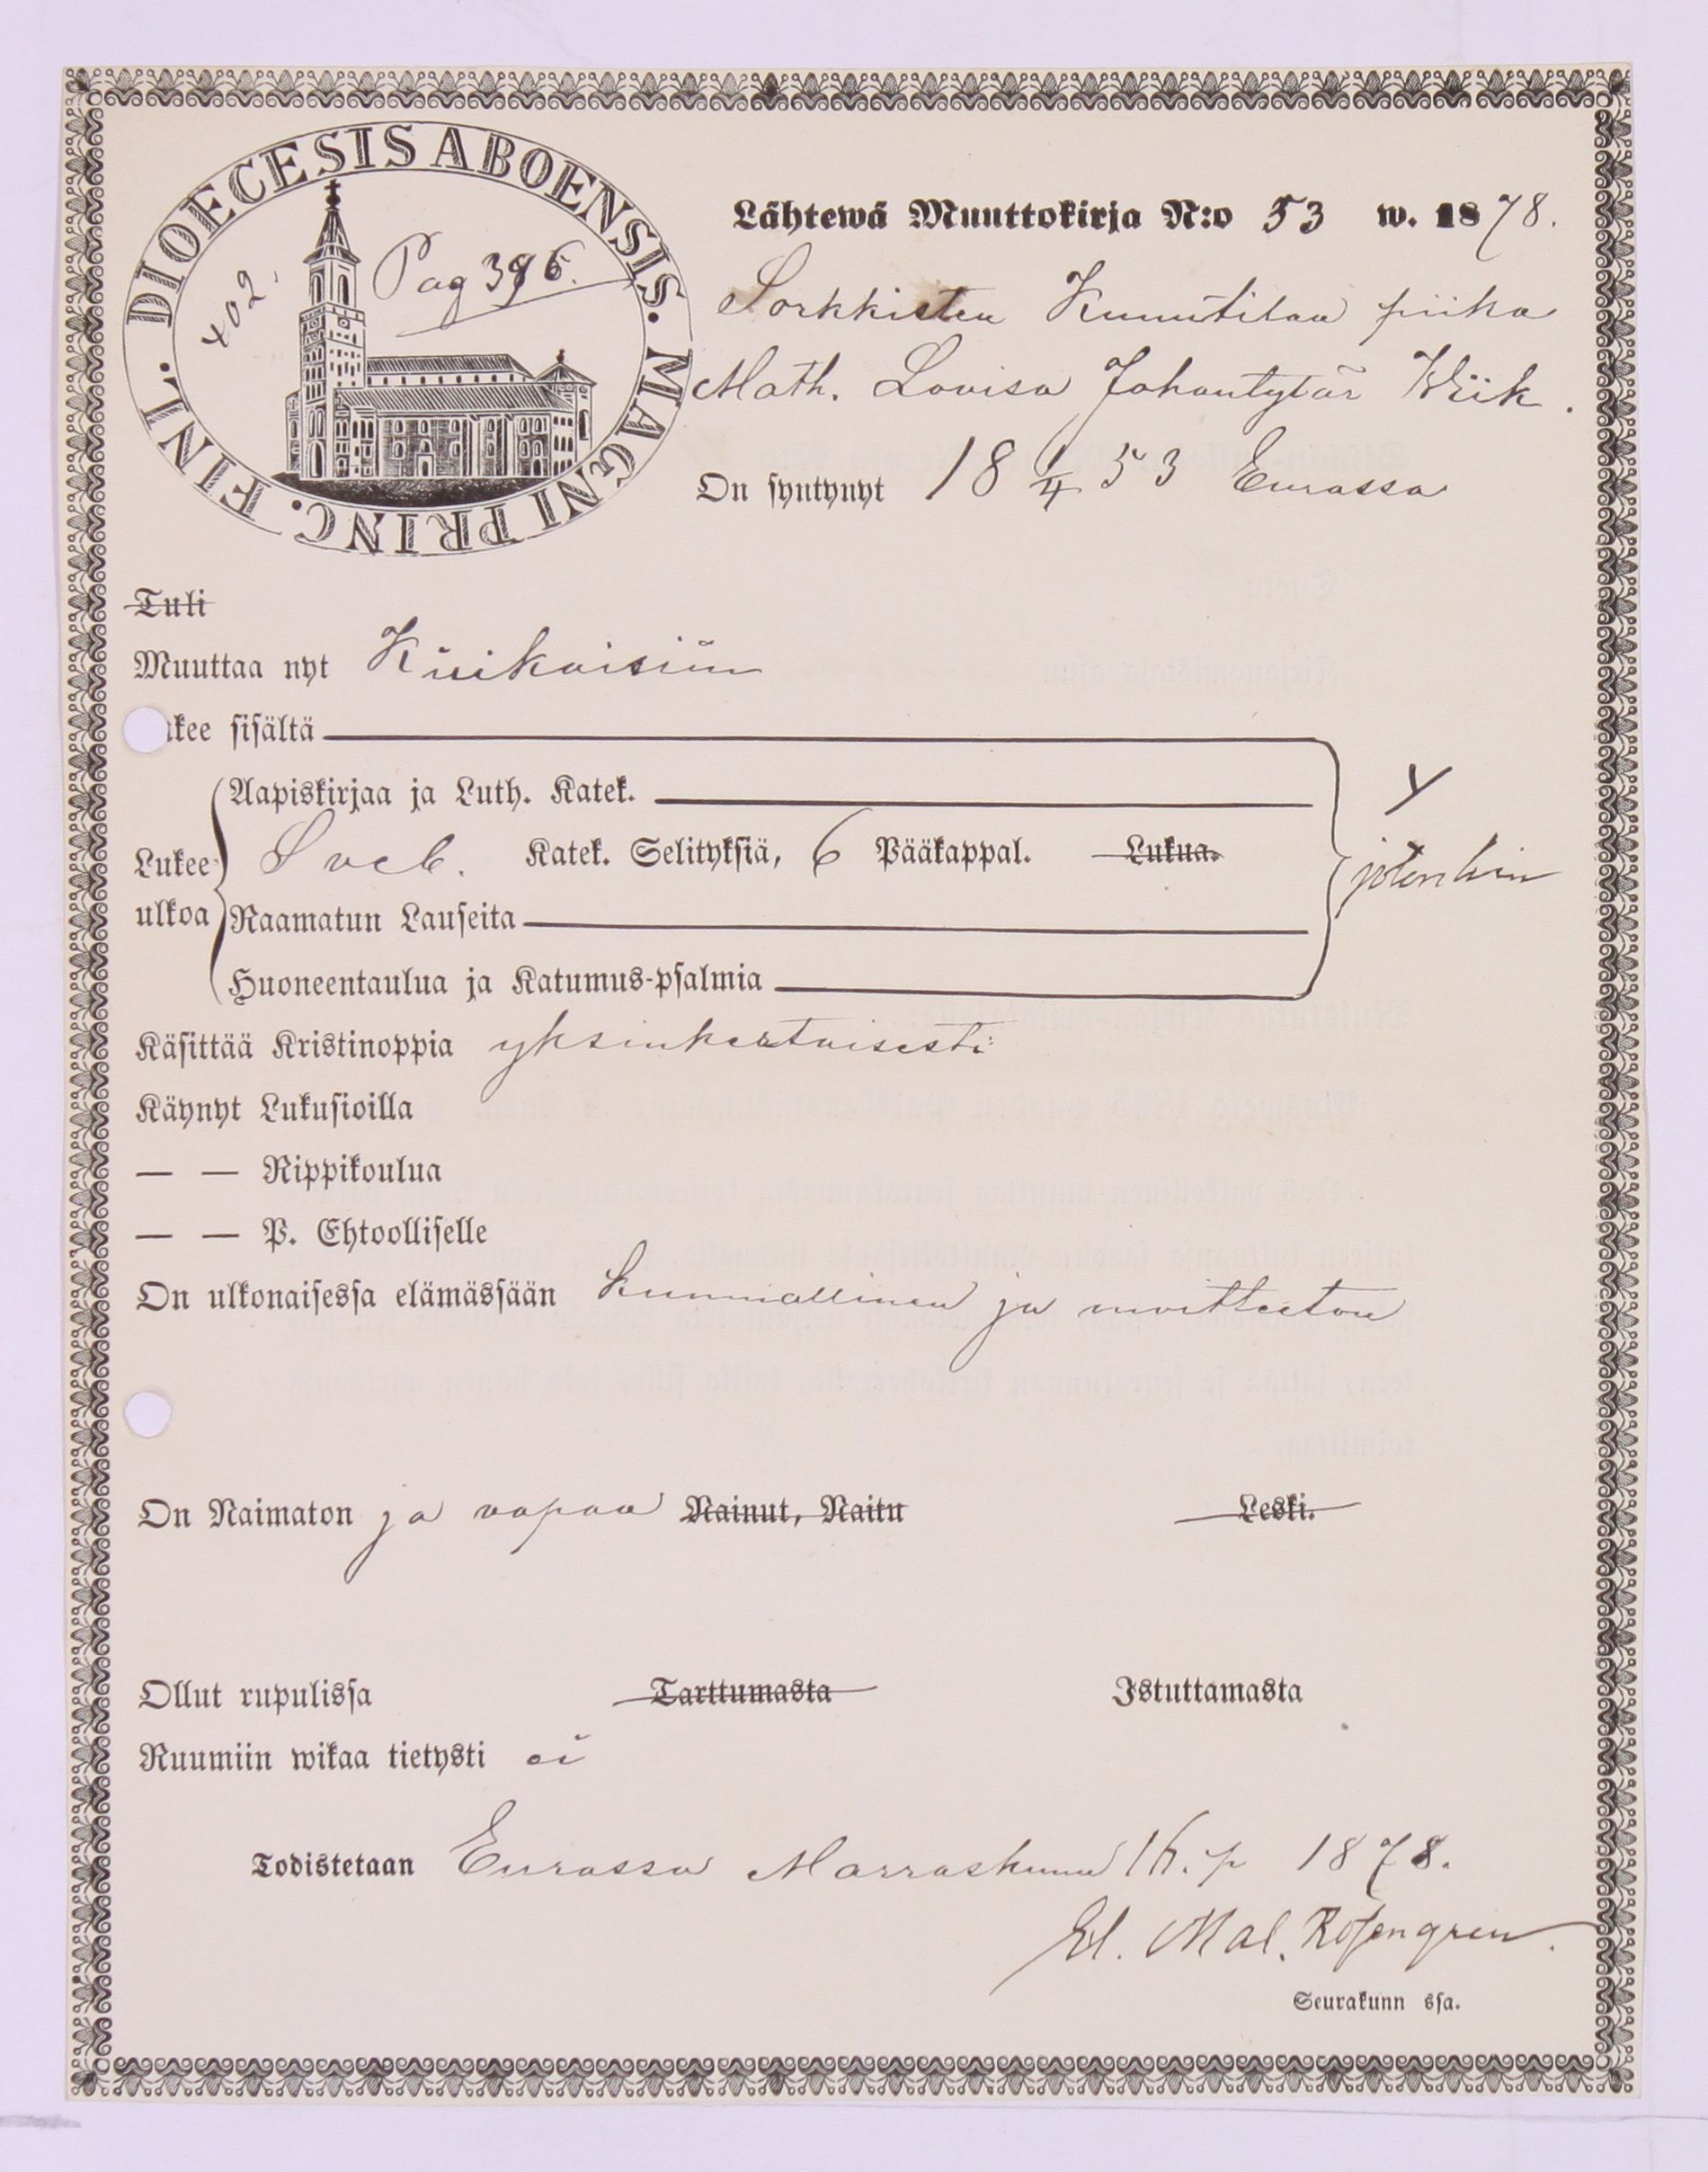 DIOECESIS ABOENSIS. MAGNI PRINC. FINL.
402.
Pag 396.
Lähtewä Muuttokirja N:o 53 w. 1878.
Sorkkisten Kuuutilan piika
Math. Lovisa Johantytär Wiik.
On syntynyt 18 1/4 53 Eurassa
Tuli
Muuttaa nyt Kiikaisiin
kee sisältä
Aapiskirjaa ja Luth. Katek.
Lukee ulkoa
Sveb. Katek. Selityksiä, 6 Pääkappal. Lukua.
Raamatun Lauseita
Huoneentaulua ja Katumus-psalmia
jotenkin
Käsittää Kristinoppia yksinkertaisesti
Käynyt Lukusioilla
— — Rippikoulua
— — P. Ehtoolliselle
On ulkonaisessa elämässään kunniallinen ja moitteeton
On Naimaton ja vapaa Nainut, Naitu Leski.
Ollut rupulissa Tarttumasta Istuttamasta
Ruumiin wikaa tietysti ei
Todistetaan Eurassa Marraskuun 16. p 1878.
Ed. Mal. Rosengren.
Seurakunn ssa.